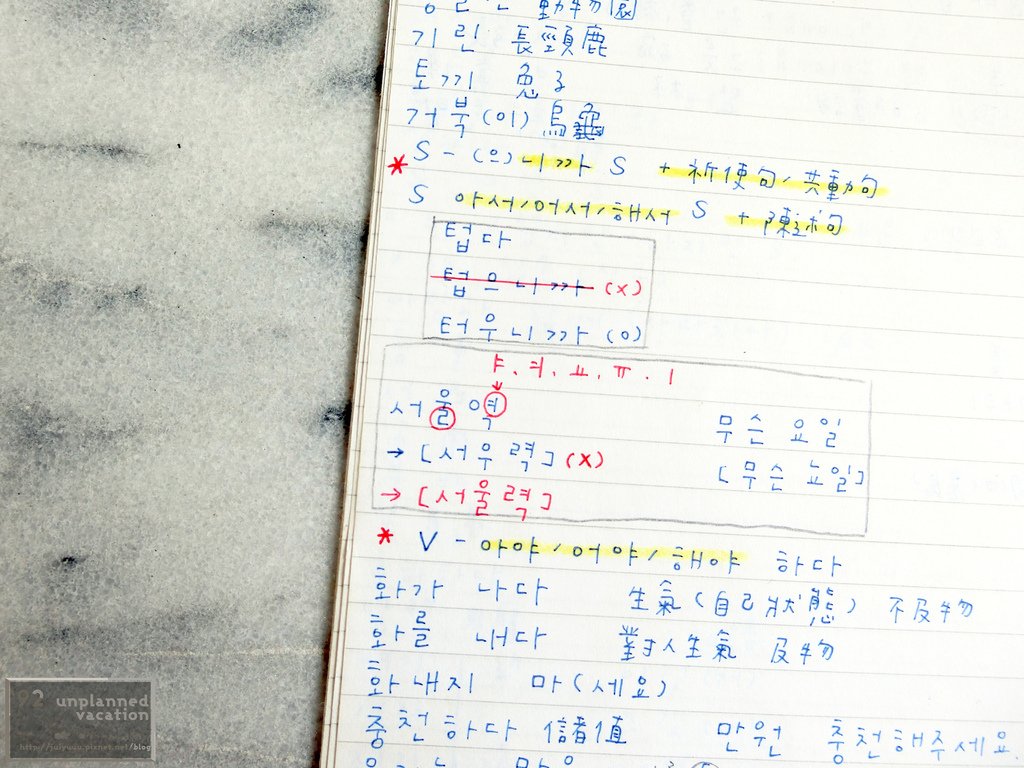 動物園
기린 長頸鹿
토끼 兔子
거북(이) 烏龜
* S - (으)니까 S + 祈使句/共動句
S 아서/어서/해서 S + 陳述句
텁다
텁으니까 (x)
터우니까 (o)
ㅑ.ㅕ.ㅛ.ㅠ.ㅣ
서울역 무슨 요일
→ [서우력] (x) [무슨 뇨일]
→ [서울력]
* V - 아야/어야/해야 하다
화가 나다 生氣(自己狀態) 不及物
화를 내다 對人生氣 及物
화내지 마(세요)
충천하다 儲值 만원 충천해주세요.
unplanned
vacation